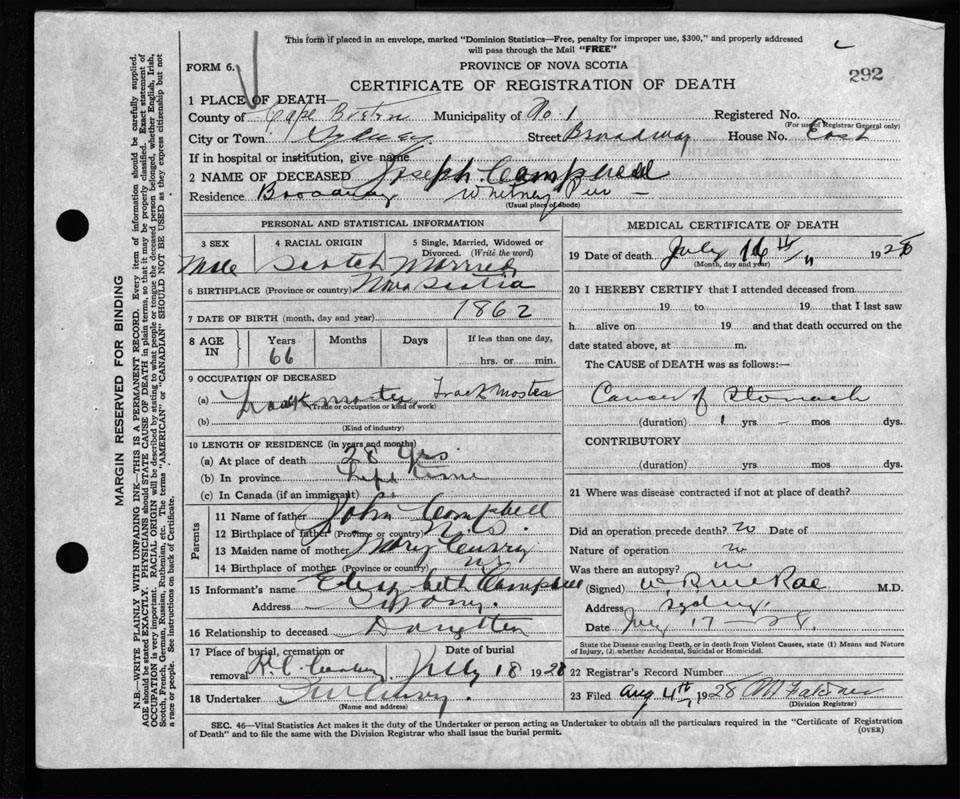 This form if placed in an envelope, marked "Dominion Statistics—Free, penalty for improper use, $300," and properly addressed
will pass through the Mail "FREE"
292
FORM 6.
PROVINCE OF NOVA SCOTIA
CERTIFICATE OF REGISTRATION OF DEATH
1 PLACE OF DEATH—
County of Cape Breton Municipality of No. 1 Registered No.
(For use of Registrar General only)
City or Town Sydney Street Broadway House No. East
If in hospital or institution, give name
2 NAME OF DECEASED Joseph Campbell
Residence Broadway Whitney Pier —
(Usual place of abode)
PERSONAL AND STATISTICAL INFORMATION
3 SEX
4 RACIAL ORIGIN
5 Single, Married, Widowed or
Divorced. (Write the word)
Male Scotch Married
6 BIRTHPLACE (Province or country) Nova Scotia
7 DATE OF BIRTH (month, day and year) 1862
8 AGE
IN
Years
66
Months
Days
If less than one day,
hrs. or min.
9 OCCUPATION OF DECEASED
(a) Track master Track Master
(Trade or occupation or kind of work)
(b)
(Kind of industry)
10 LENGTH OF RESIDENCE (in years and months)
(a) At place of death 28 yrs
(b) In province Life time
(c) In Canada (if an immigrant)
Parents
11 Name of father John Campbell
12 Birthplace of father (Province or country) N.S.
13 Maiden name of mother Mary Curry
14 Birthplace of mother (Province or country) N.S.
15 Informant's name Elizabeth Campbell
Address
16 Relationship to deceased Daughter
17 Place of burial, cremation or
removal R.C.
Date of burial
July 18 1928
18 Undertaker
(Name and address)
MEDICAL CERTIFICATE OF DEATH
19 Date of death July 16th 1928
(Month, day and year)
20 I HEREBY CERTIFY that I attended deceased from
19 to 19 that I last saw
h alive on 19 and that death occurred on the
date stated above, at m.
The CAUSE OF DEATH was as follows:—
Cancer of Stomach
(duration) 1 yrs — mos dys.
CONTRIBUTORY
(duration) yrs mos dys.
21 Where was disease contracted if not at place of death?
Did an operation precede death? no Date of
Nature of operation
Was there an autopsy? no
(Signed) M.D.
Address Sydney.
Date July 17—28.
State the Disease causing Death, or in death from Violent Causes, state (1) Means and Nature
of Injury, (2) whether Accidental, Suicidal or Homicidal.
22 Registrar's Record Number
23 Filed Aug 4th, 1928
(Division Registrar)
SEC. 46—Vital Statistics Act makes it the duty of the Undertaker or person acting as Undertaker to obtain all the particulars required in the "Certificate of Registration
of Death" and to file the same with the Division Registrar who shall issue the burial permit.
(OVER)
MARGIN RESERVED FOR BINDING
N.B.—WRITE PLAINLY WITH UNFADING INK—THIS IS A PERMANENT RECORD. Every item of information should be carefully supplied.
AGE should be stated EXACTLY. PHYSICIANS should STATE CAUSE OF DEATH in plain terms, so that it may be properly classified. Exact statement of
OCCUPATION is very important. RACIAL ORIGIN will be described by stating to what people or tongue the deceased person belonged, whether English, Irish,
Scotch, French, German, Russian, Ruthenian, etc. The terms "AMERICAN" or "CANADIAN" SHOULD NOT BE USED as they express citizenship but not
a race or people. See instructions on back of Certificate.